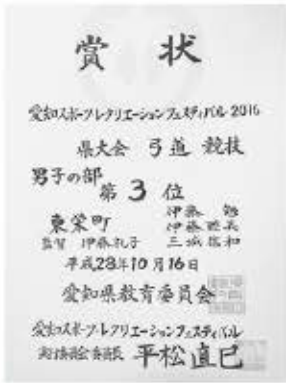 賞状
愛知スポーツ・レクリエーションフェスティバル2016
県大会 弓道 競技
男子の部
第3位
東栄町 伊藤
伊藤
監督 伊藤礼子 三城
平成28年10月16日
愛知県教育委員会
愛知スポーツ・レクリエーションフェスティバル
実行委員会委員長 平松直巳